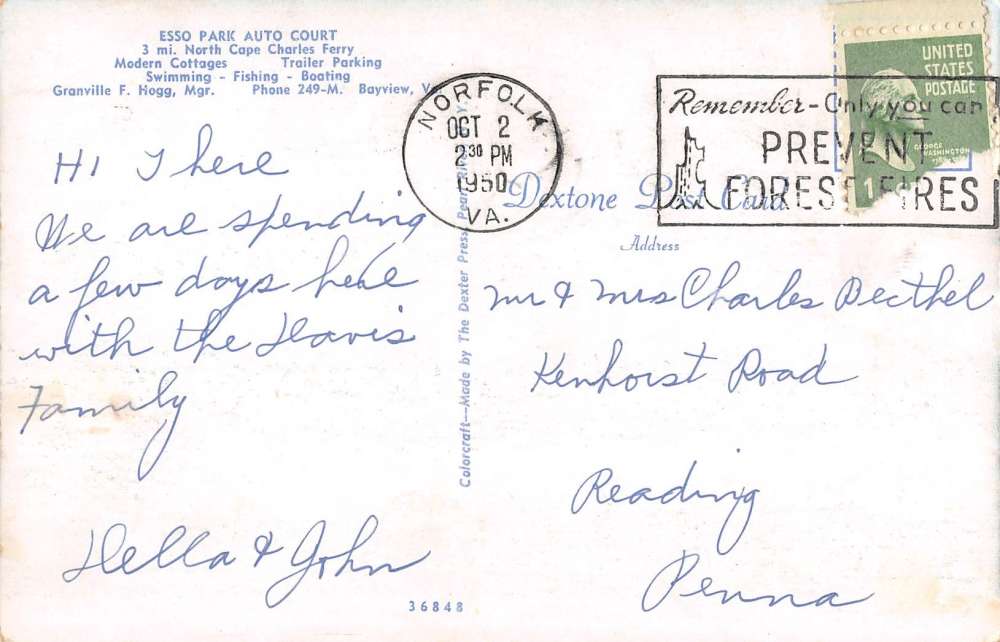 ESSO PARK AUTO COURT
3 mi. North Cape Charles Ferry
Modern Cottages Trailer Parking
Swimming - Fishing - Boating
Granville F. Hogg, Mgr. Phone 249-M. Bayview, Va.
Hi There
We are spending
a few days here
with the Davis
Family
Della & John
36848
Colorcraft—Made by The Dexter Press, Pearl River, N. Y.
NORFOLK
OCT 2
2 30 PM
1950
VA.
Remember - Only you can
PREVENT
FOREST FIRES
UNITED
STATES
POSTAGE
GEORGE
WASHINGTON
1
Dextone Post Card
Address
Mr & Mrs Charles Becthel
Kenhorst Road
Reading
Penna